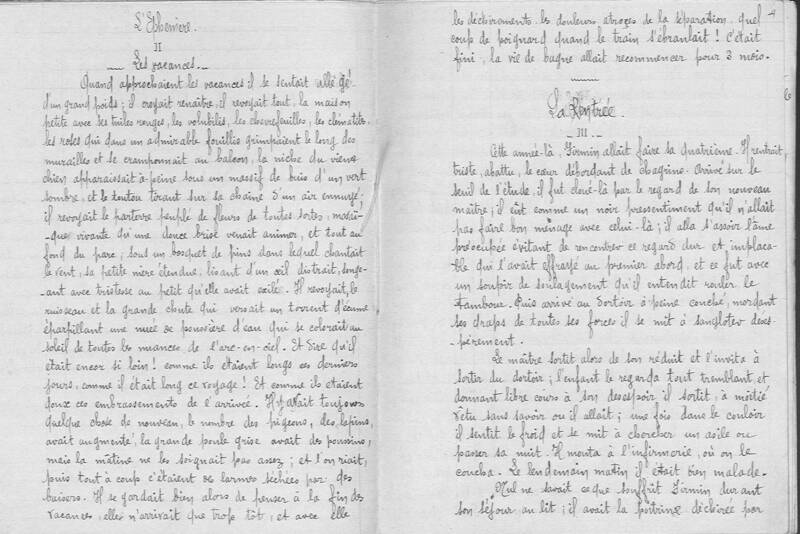 L'Ebénière.
II
Les vacances.
Quand approchaient les vacances il se sentait allégé
d'un grand poids ; il croyait renaître, il revoyait tout, la maison
petite avec ses tuiles rouges, les volubilis, les chèvrefeuilles, les clématites
les roses qui dans un admirable fouillis grimpaient le long des
murailles et se cramponnait au balcon, la niche du vieux
chien apparaissait à peine sous un massif de buis d'un vert
sombre, et le toutou tirant sur sa chaîne d'un air ennuyé;
il revoyait le parterre peuplé de fleurs de toutes sortes, mosaï-
-que vivante qu'une douce brise venait animer, et tout au
fond du parc ; sous un bosquet de pins dans lequel chantait
le vent, sa petite mère étendue, lisant d'un œil distrait, songe-
-ant avec tristesse au petit qu'elle avait exilé. Il revoyait, le
ruisseau et la grande chute qui versait un torrent d'écume
éparpillant une nuée de poussière d'eau qui se colorait au
soleil de toutes les nuances de l'arc-en-ciel. Et dire qu'il
était encor si loin ! comme ils étaient longs ces derniers
jours, comme il était long ce voyage ! Et comme ils étaient
doux ces embrassements de l'arrivée. Il y avait toujours
quelque chose de nouveau, le nombre des pigeons, des lapins,
avait augmenté, la grande poule grise avait des poussins,
mais la mâtine ne les soignait pas assez ; et l'on riait,
puis tout à coup c'étaient des larmes séchées par des
baisers. Il se gardait bien alors de penser à la fin des
vacances, elle n'arrivait que trop tôt, et avec elle
4
les déchirements les douleurs atroces de la séparation quel
coup de poignard quand le train s'ébranlait ! C'était
fini, la vie de bagne allait recommencer pour 3 mois.
La Rentrée.
III
Cette année-là, Firmin allait faire sa quatrième. Il rentrait
triste, abattu, le cœur débordant de chagrins. Arrivé sur le
seuil de l'étude, il fut cloué là par le regard de son nouveau
maître ; il eût comme un noir pressentiment qu'il n'allait
pas faire bon ménage avec celui-là ; il alla s'assoir l'âme
préocupée évitant de rencontrer ce regard dur et implaca-
ble qui l'avait effrayé au premier abord, et ce fut avec
un soupir de soulagement qu'il entendit rouler le
tambour. Puis arrivé au dortoir à peine couché, mordant
ses draps de toutes ses forces il se mit à sangloter deses-
-pérément.
Le maître sortit alors de son réduit et l'invita à
sortir du dortoir ; l'enfant le regarda tout tremblant et
donnant libre cours à son désespoir il sortit, à moitié
vêtu sans savoir ou il allait ; une fois dans le couloir
il sentit le froid et se mit à chercher un asile ou
passer sa nuit. Il monta à l'infirmerie, où on le
coucha. Le lendemain matin il était bien malade.
Nul ne savait ce que souffrit Firmin durant
son séjour au lit ; il avait la poitrine déchirée par